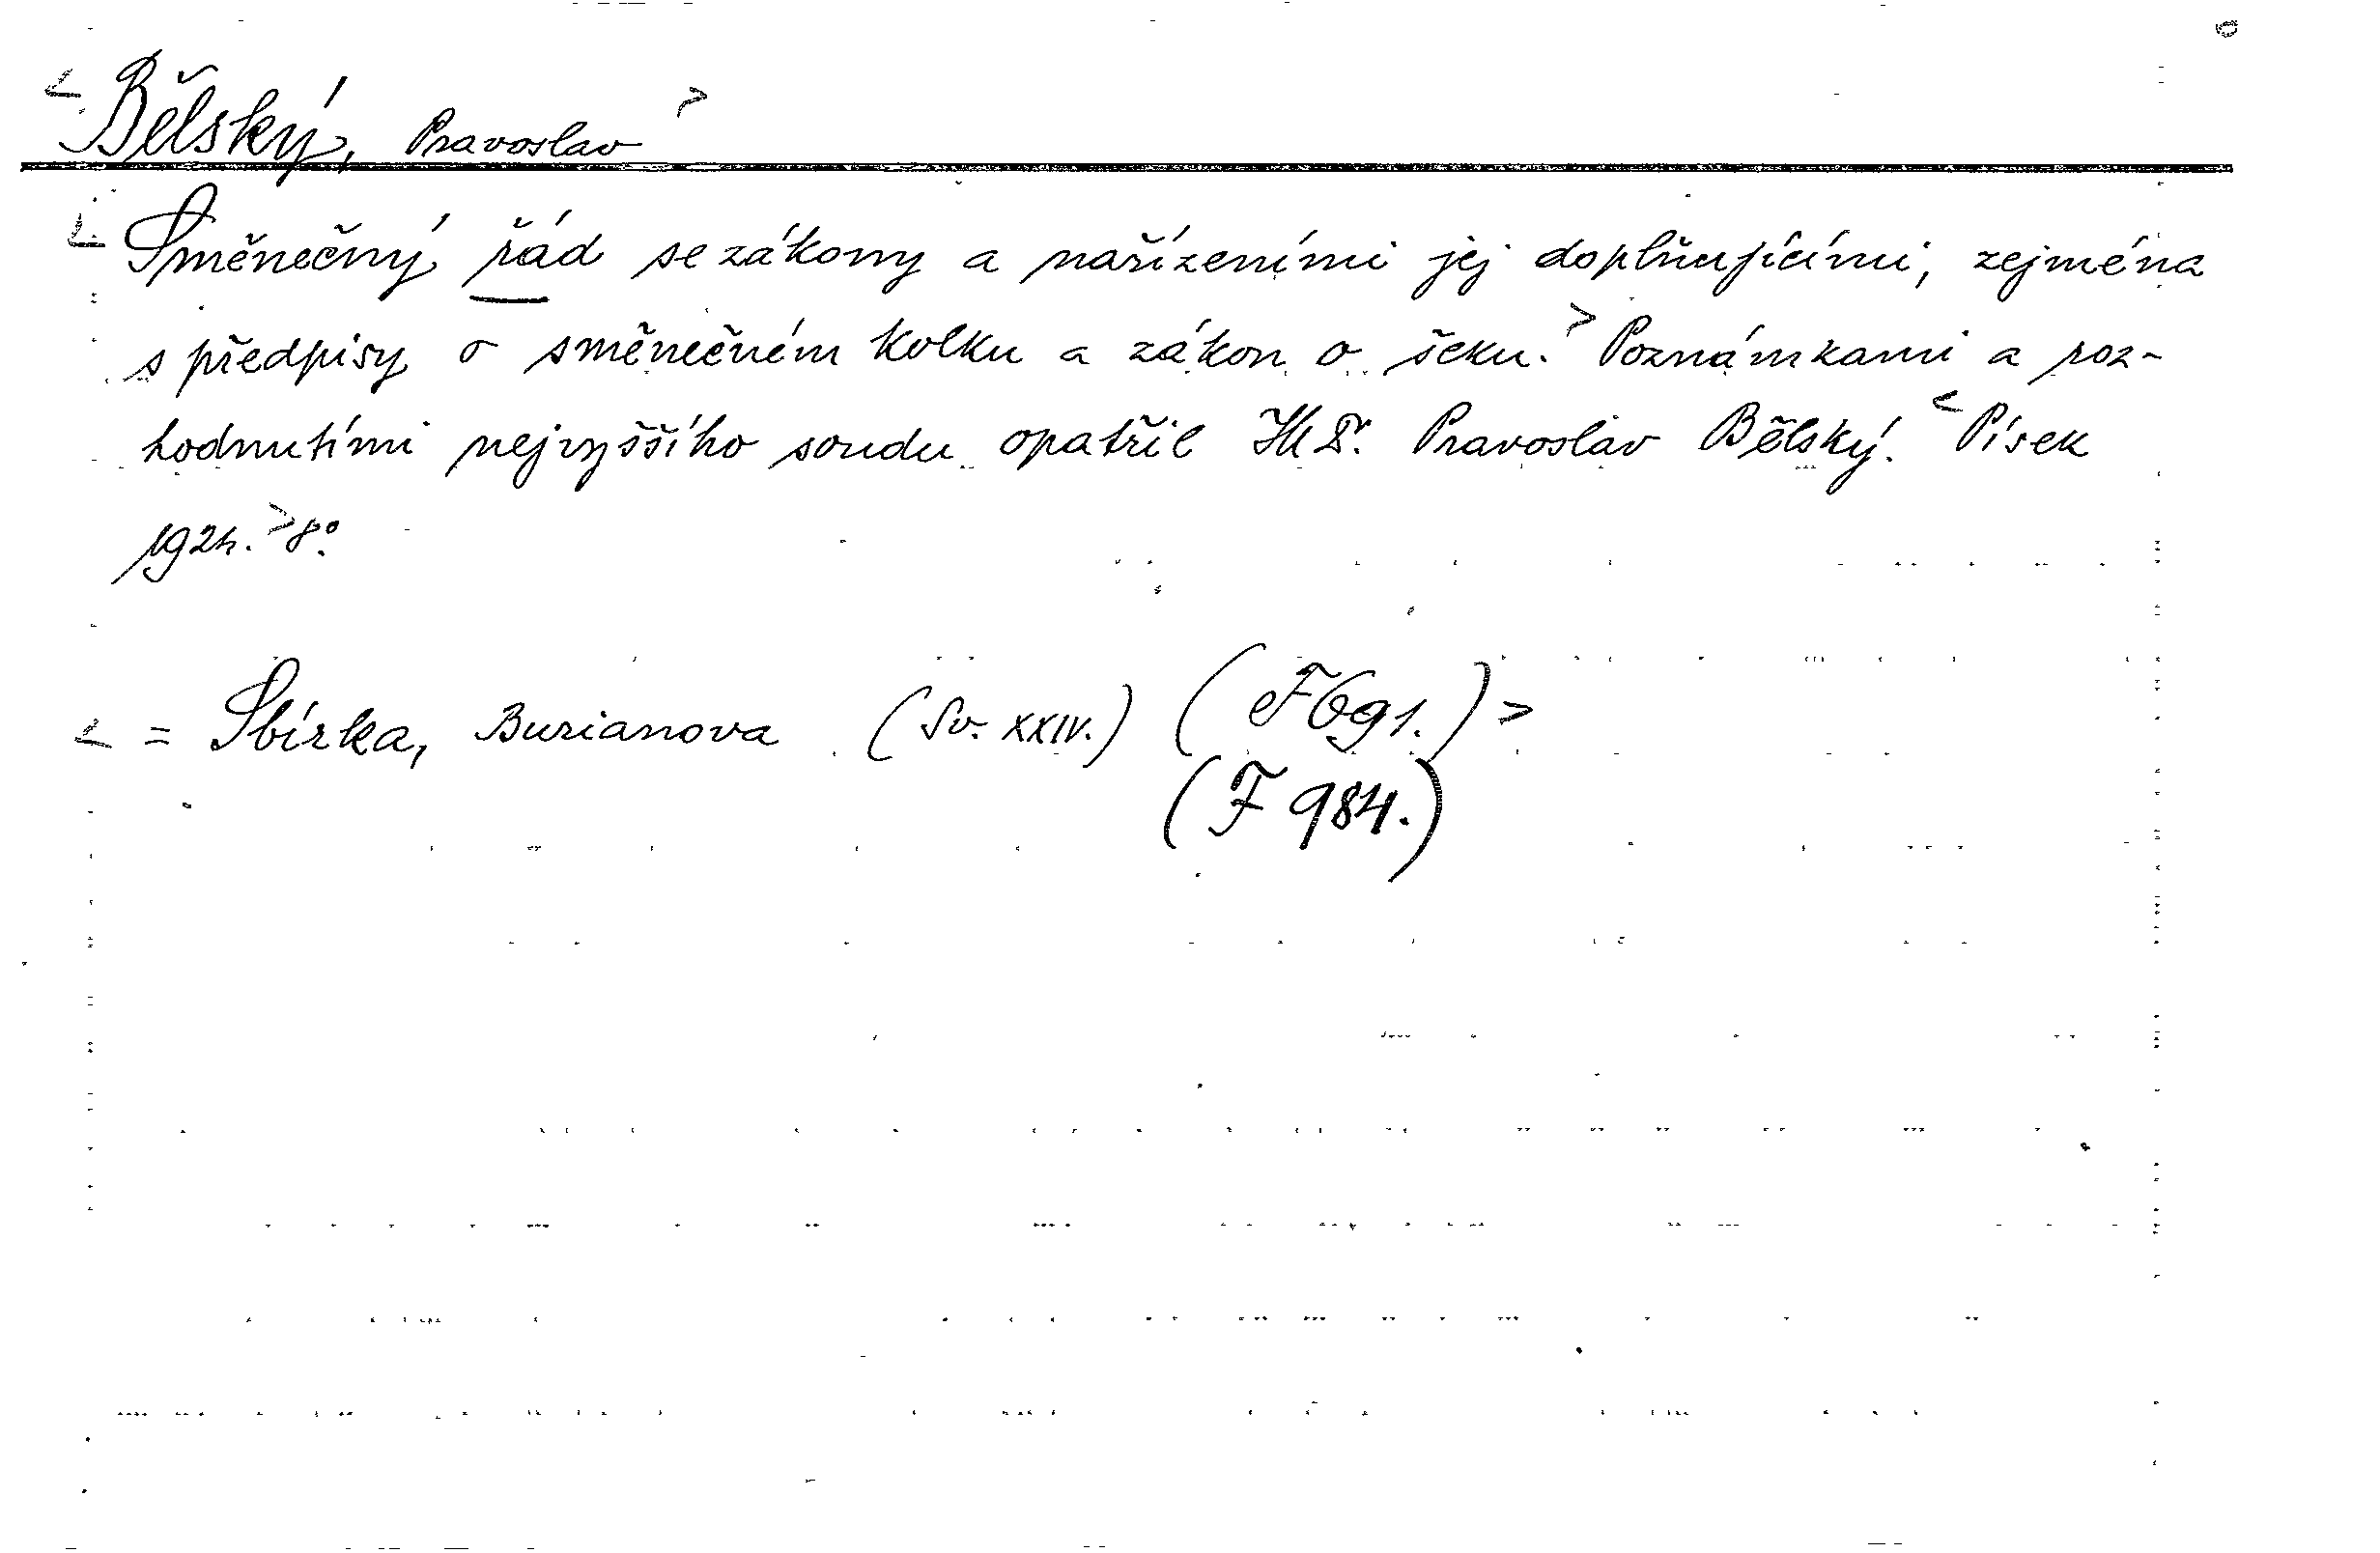 < Bělský, Pravoslav >
< Směnečný řád se zákony a nařízeními jej doplňujícími, zejména
s předpisy o směnečném kolku a zákon o šeku. > Poznámkami a roz-
hodnutími nejvyššího soudu opatřil JUDr. Pravoslav Bělský. < Písek
1924. > 8°.
< = Sbírka, Burianova (Sv. XXIV.) (F 691.) >
(F 984.)